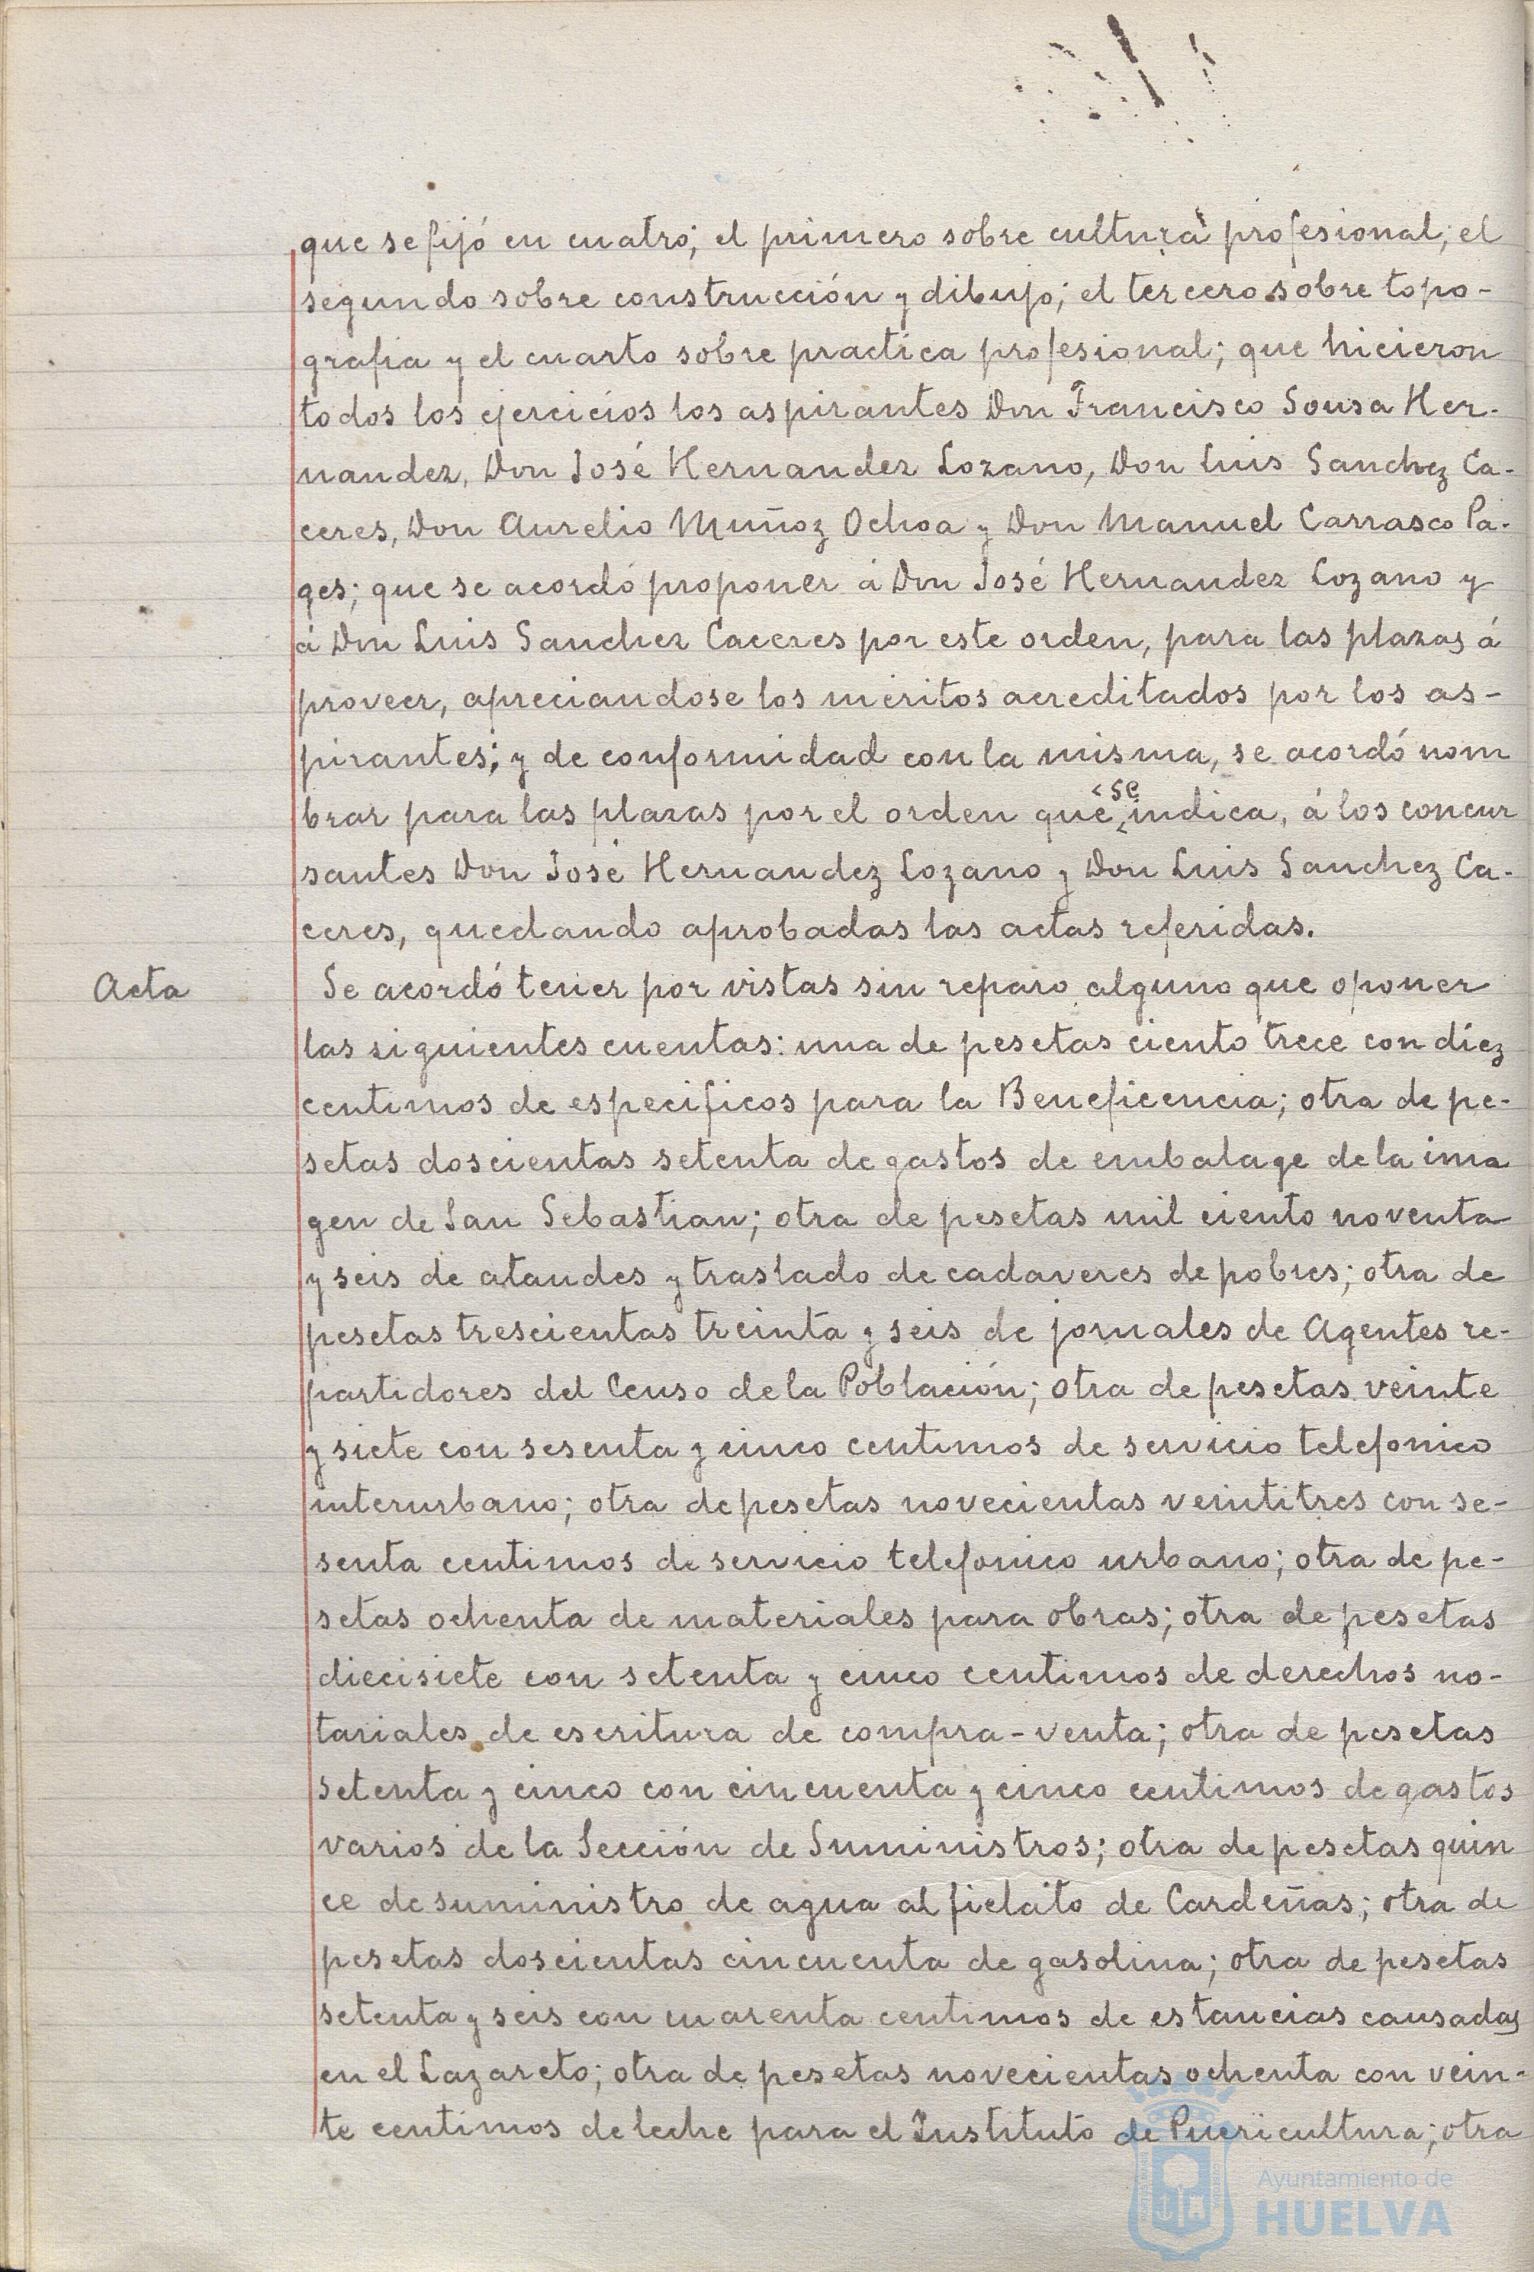 que se fijó en cuatro; el primero sobre cultura profesional; el
segundo sobre construcción y dibujo; el tercero sobre topo-
grafia y el cuarto sobre practica profesional; que hicieron
todos los ejercicios los aspirantes Don Francisco Sousa Her-
nandez, Don José Hernandez Lozano, Don Luis Sanchez Ca-
ceres, Don Aurelio Muñoz Ochoa y Don Manuel Carrasco Pa-
ges; que se acordó proponer á Don José Hernandez Lozano y
á Don Luis Sanchez Caceres por este orden, para las plazas á
proveer, apreciandose los méritos acreditados por los as-
pirantes; y de conformidad con la misma, se acordó nom
brar para las plazas por el orden que se indica, á los concur
santes Don José Hernandez Lozano y Don Luis Sanchez Ca-
ceres, quedando aprobadas las actas referidas.
Acta
Se acordó tener por vistas sin reparo alguno que oponer
las siguientes cuentas: una de pesetas ciento trece con diez
centimos de especificos para la Beneficencia; otra de pe-
setas doscientas setenta de gastos de embalage de la ima
gen de San Sebastian; otra de pesetas mil ciento noventa
y seis de ataudes y traslado de cadaveres de pobres; otra de
pesetas trescientas treinta y seis de jornales de Agentes re-
partidores del Censo de la Población; otra de pesetas veinte
y siete con sesenta y cinco centimos de servicio telefonico
interurbano; otra de pesetas novecientas veintitres con se-
senta centimos de servicio telefonico urbano; otra de pe-
setas ochenta de materiales para obras; otra de pesetas
diecisiete con setenta y cinco centimos de derechos no-
tariales de escritura de compra-venta; otra de pesetas
setenta y cinco con cincuenta y cinco centimos de gastos
varios de la Sección de Suministros; otra de pesetas quin
ce de suministro de agua al fielato de Cardeñas; otra de
pesetas doscientas cincuenta de gasolina; otra de pesetas
setenta y seis con cuarenta centimos de estancias causadas
en el Lazareto; otra de pesetas novecientas ochenta con vein-
te centimos de leche para el Instituto de Puericultura; otra
Ayuntamiento de
HUELVA